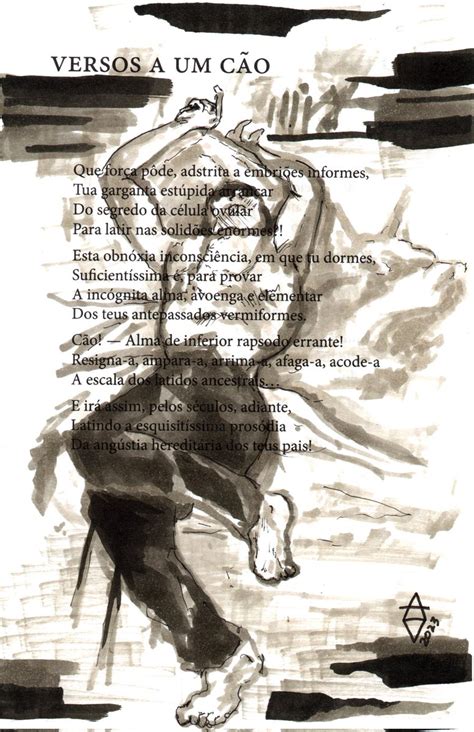 VERSOS A UM CÃO
Que força pôde, adstrita a embriões informes,
Tua garganta estúpida arrancar
Do segredo da célula ovular
Para latir nas solidões enormes?!
Esta obnóxia inconsciência, em que tu dormes,
Suficientíssima é, para provar
A incógnita alma, avoenga e elementar
Dos teus antepassados vermiformes.
Cão! — Alma de inferior rapsodo errante!
Resigna-a, ampara-a, arrima-a, afaga-a, acode-a
A escala dos latidos ancestrais...
E irá assim, pelos séculos, adiante,
Latindo a esquisitíssima prosódia
Da angústia hereditária dos teus pais!
2023